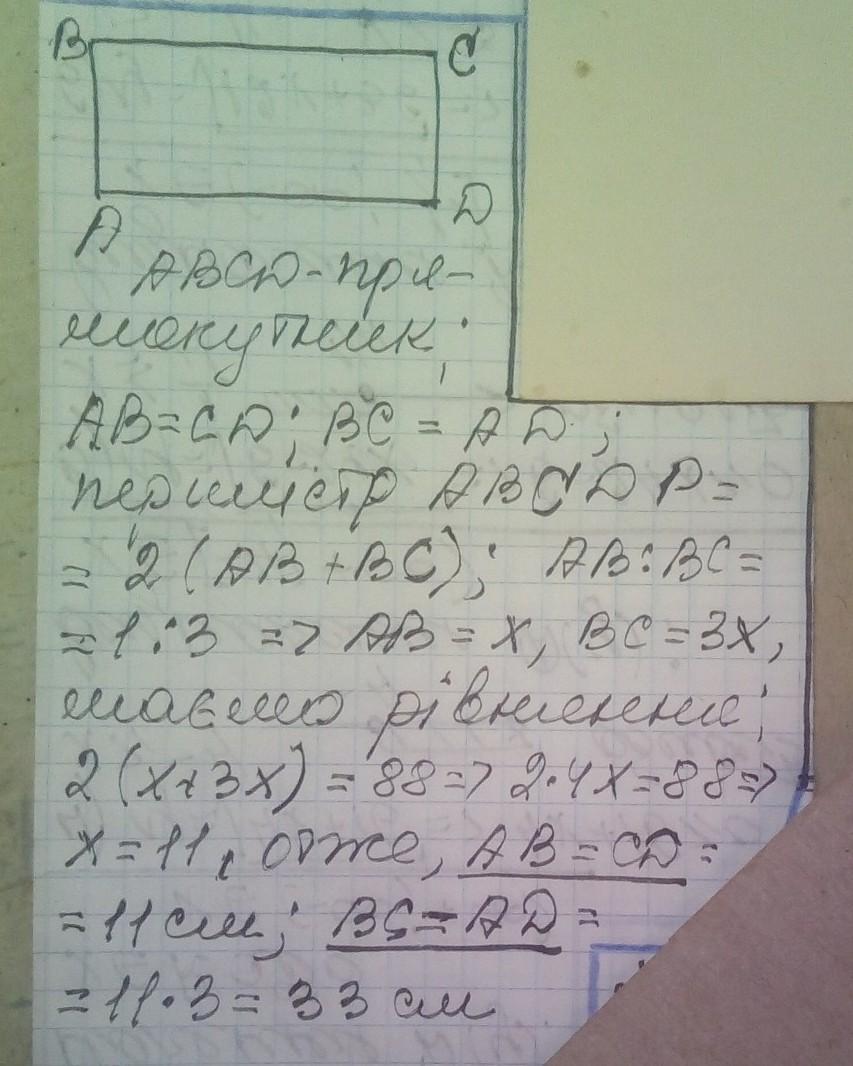 B
C
A
D
ABCD - пря-
мокутник;
AB = CD; BC = AD;
периметр ABCD P =
= 2 (AB + BC); AB : BC =
= 1 : 3 => AB = x, BC = 3x,
маємо рівняння;
2 (x + 3x) = 88 => 2 · 4x = 88 =>
x = 11, отже, AB = CD =
= 11 см; BC = AD =
= 11 · 3 = 33 см